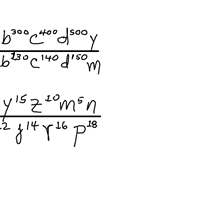 b³⁰⁰c⁴⁰⁰d⁵⁰⁰y
b²³⁰c¹⁴⁰d¹⁵⁰m
y¹⁵z¹⁰m⁵n
²y¹⁴r¹⁶p¹⁸